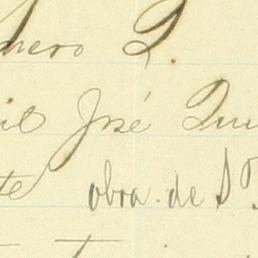 mero 2.
il José Qui
te obra de Sr.